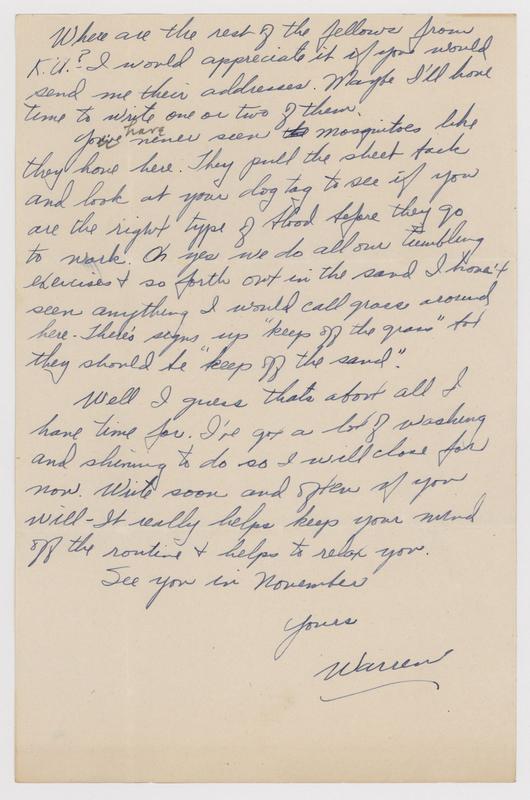 Where are the rest of the fellows from
K.U.? I would appreciate it if you would
send me their addresses. Maybe I'll have
time to write one or two of them.
You've have never seen mosquitoes like
they have here. They pull the sheet back
and look at your dog tag to see if you
are the right type of blood before they go
to work. Oh yes we do all our tumbling
exercises & so forth out in the sand I hasn't
seen anything I would call grass around
here - There's signs up "keep off the grass" but
they should be "keep off the sand".
Well I guess thats about all I
have time for. I've got a lot of washing
and shining to do so I will close for
now. Write soon and often if you
will - It really helps keep your mind
off the routine & helps to relax you.
See you in November
Yours
Warren